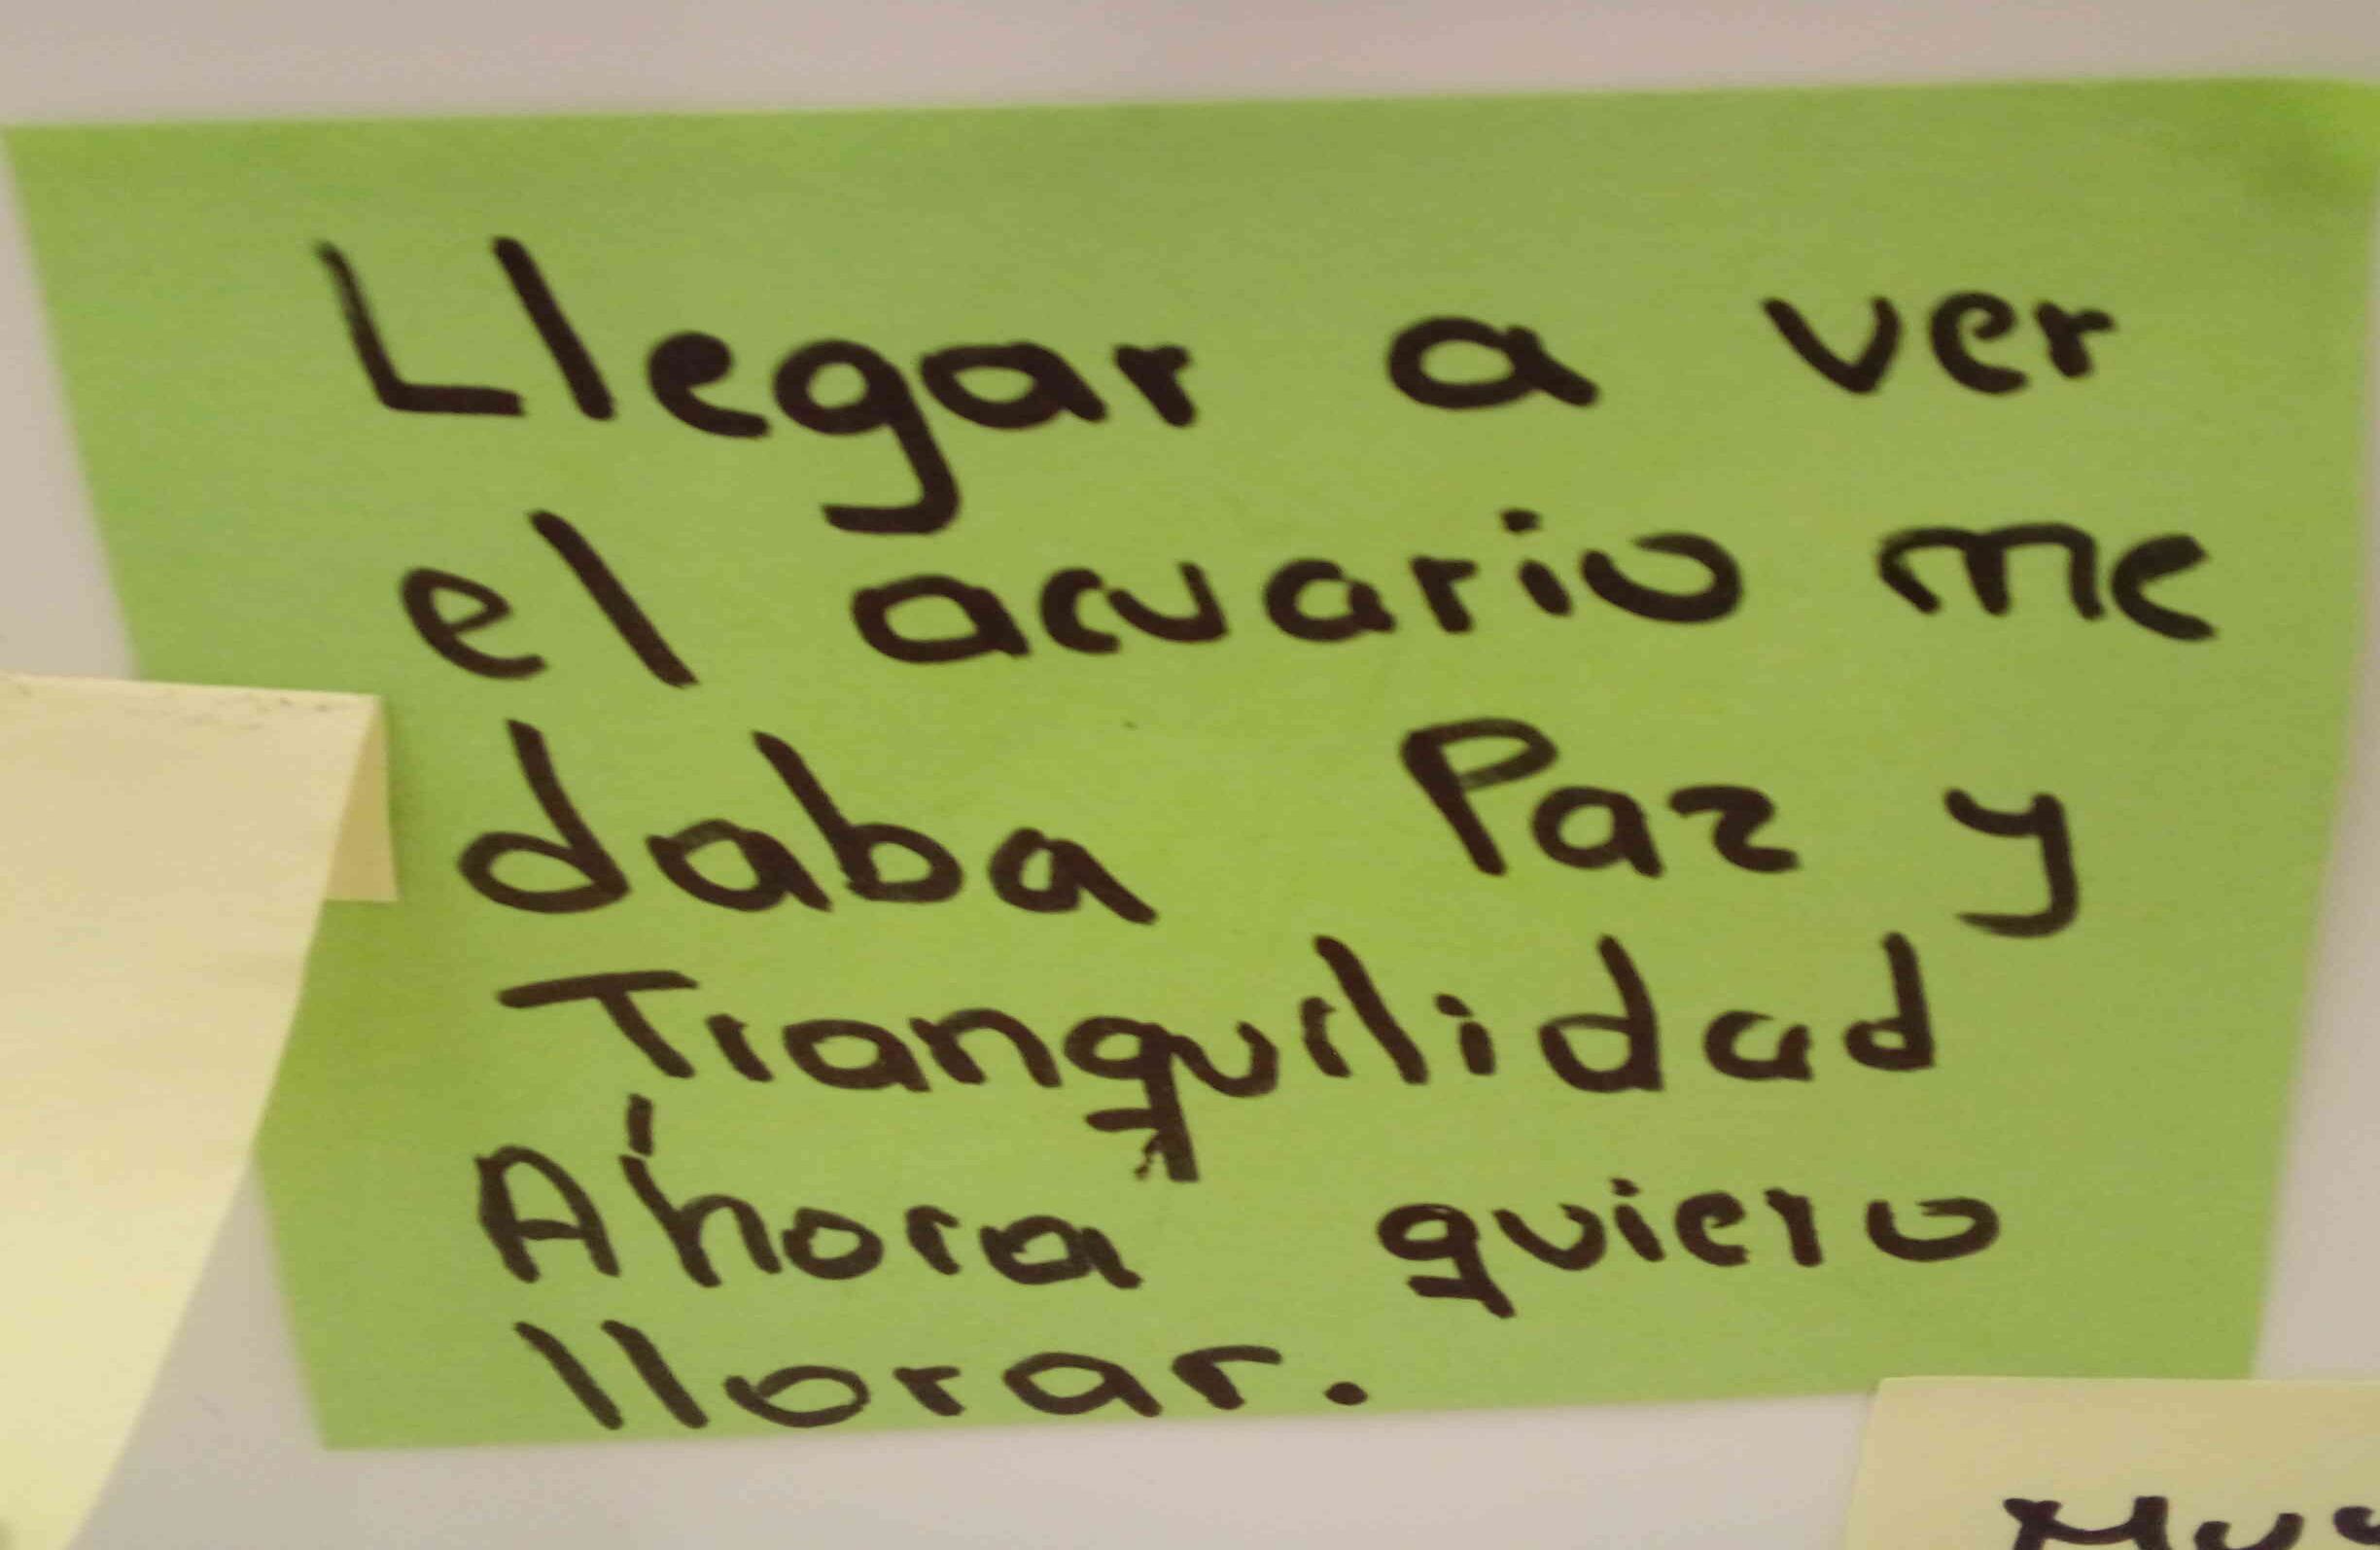 Llegar a ver
el acuario me
daba Paz y
Tranquilidad
Ahora quiero
llorar.